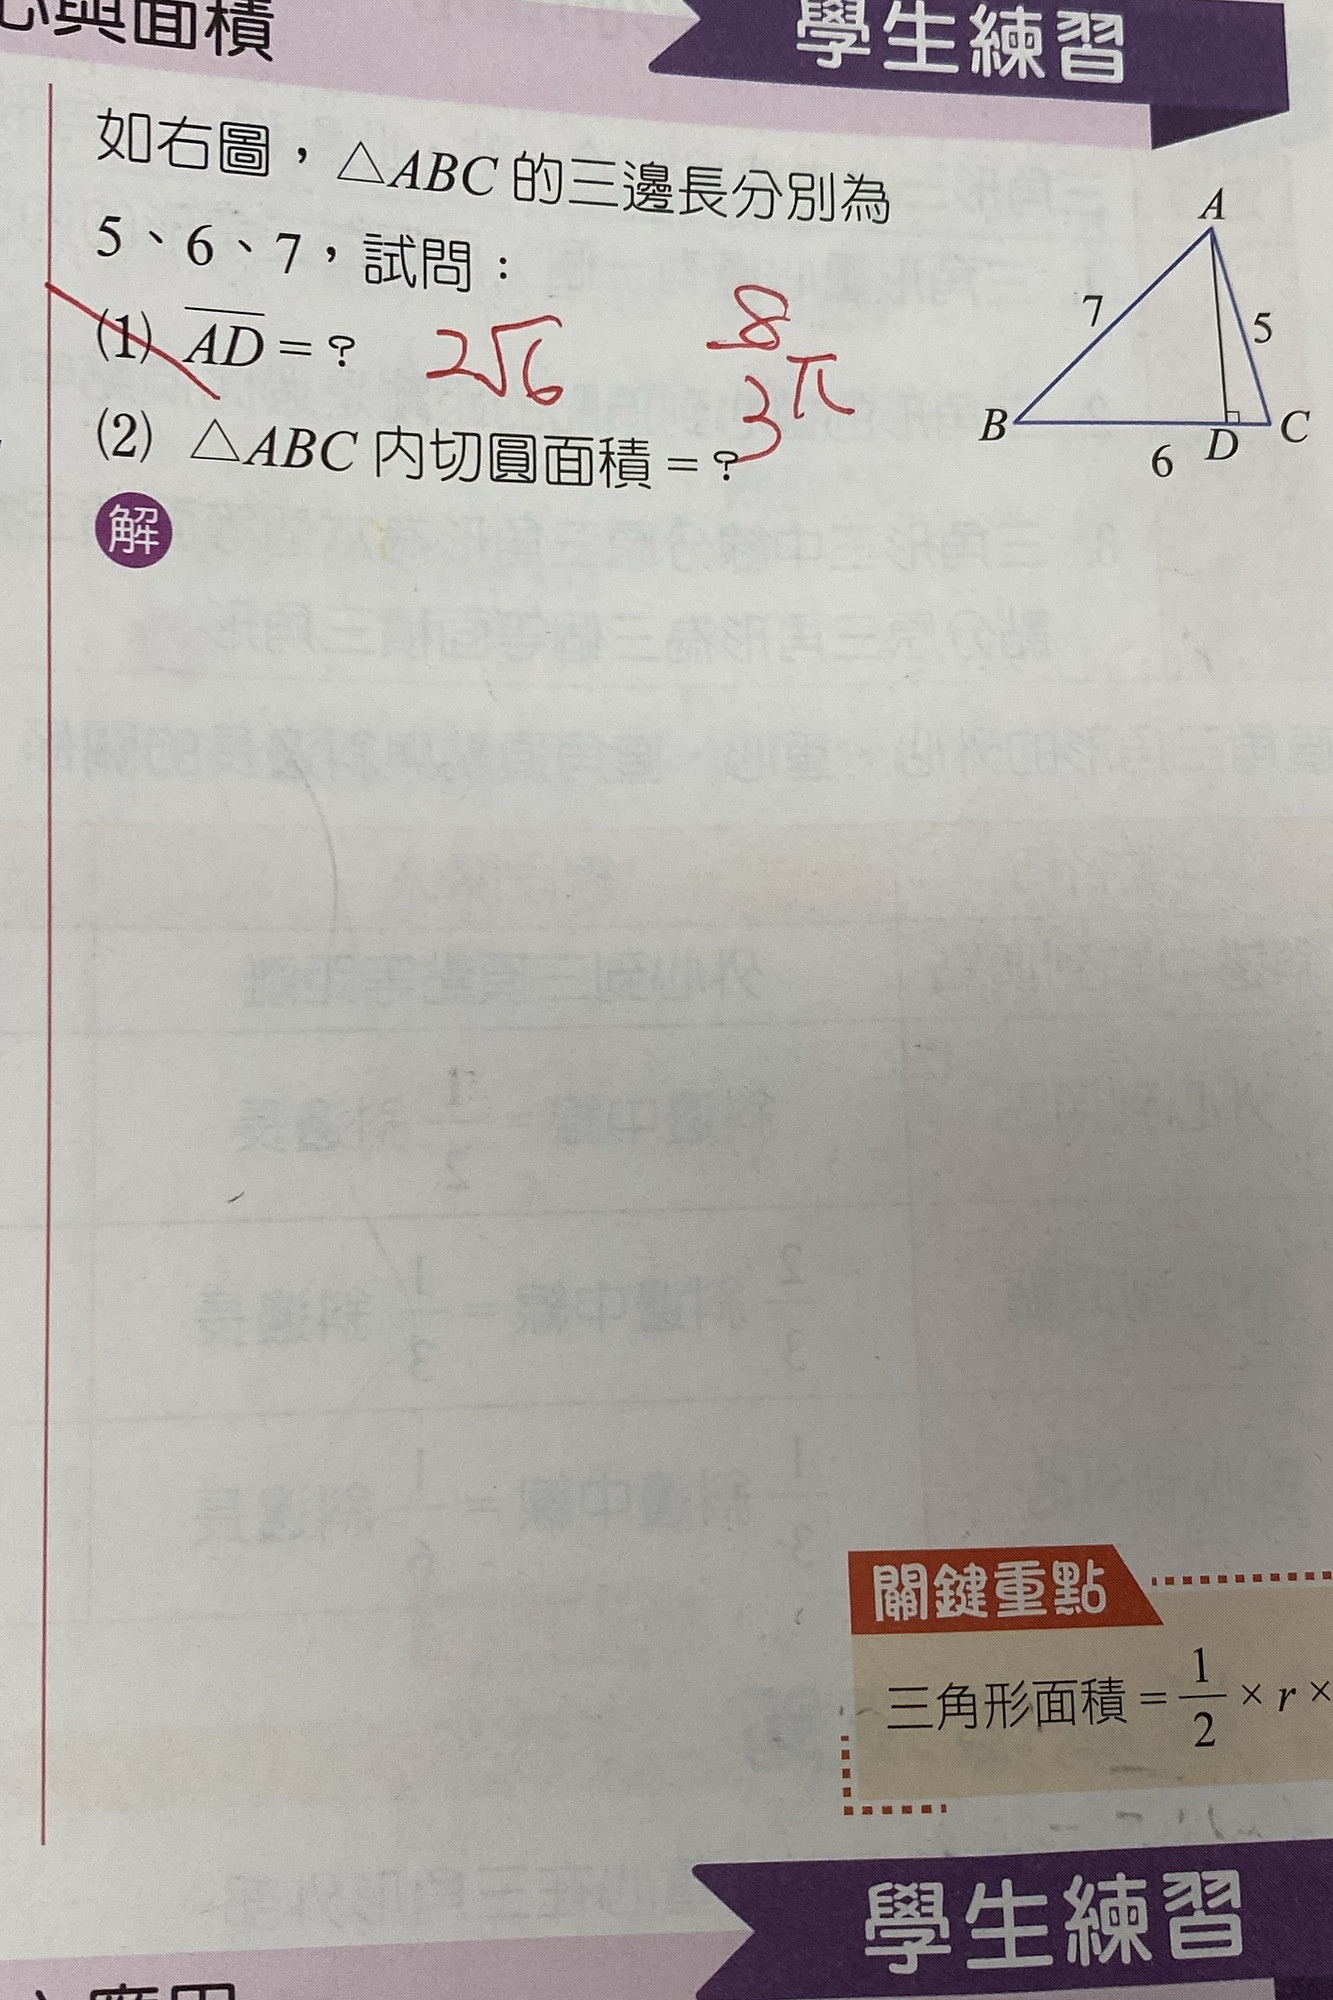 心與面積
學生練習
如右圖，△ABC 的三邊長分別為
5、6、7，試問：
(1) AD = ? 2√6
(2) △ABC 內切圓面積 = ? 8/3 π
A
7
5
B
6
D
C
解
關鍵重點
三角形面積 = 1/2 × r ×
學生練習
應用